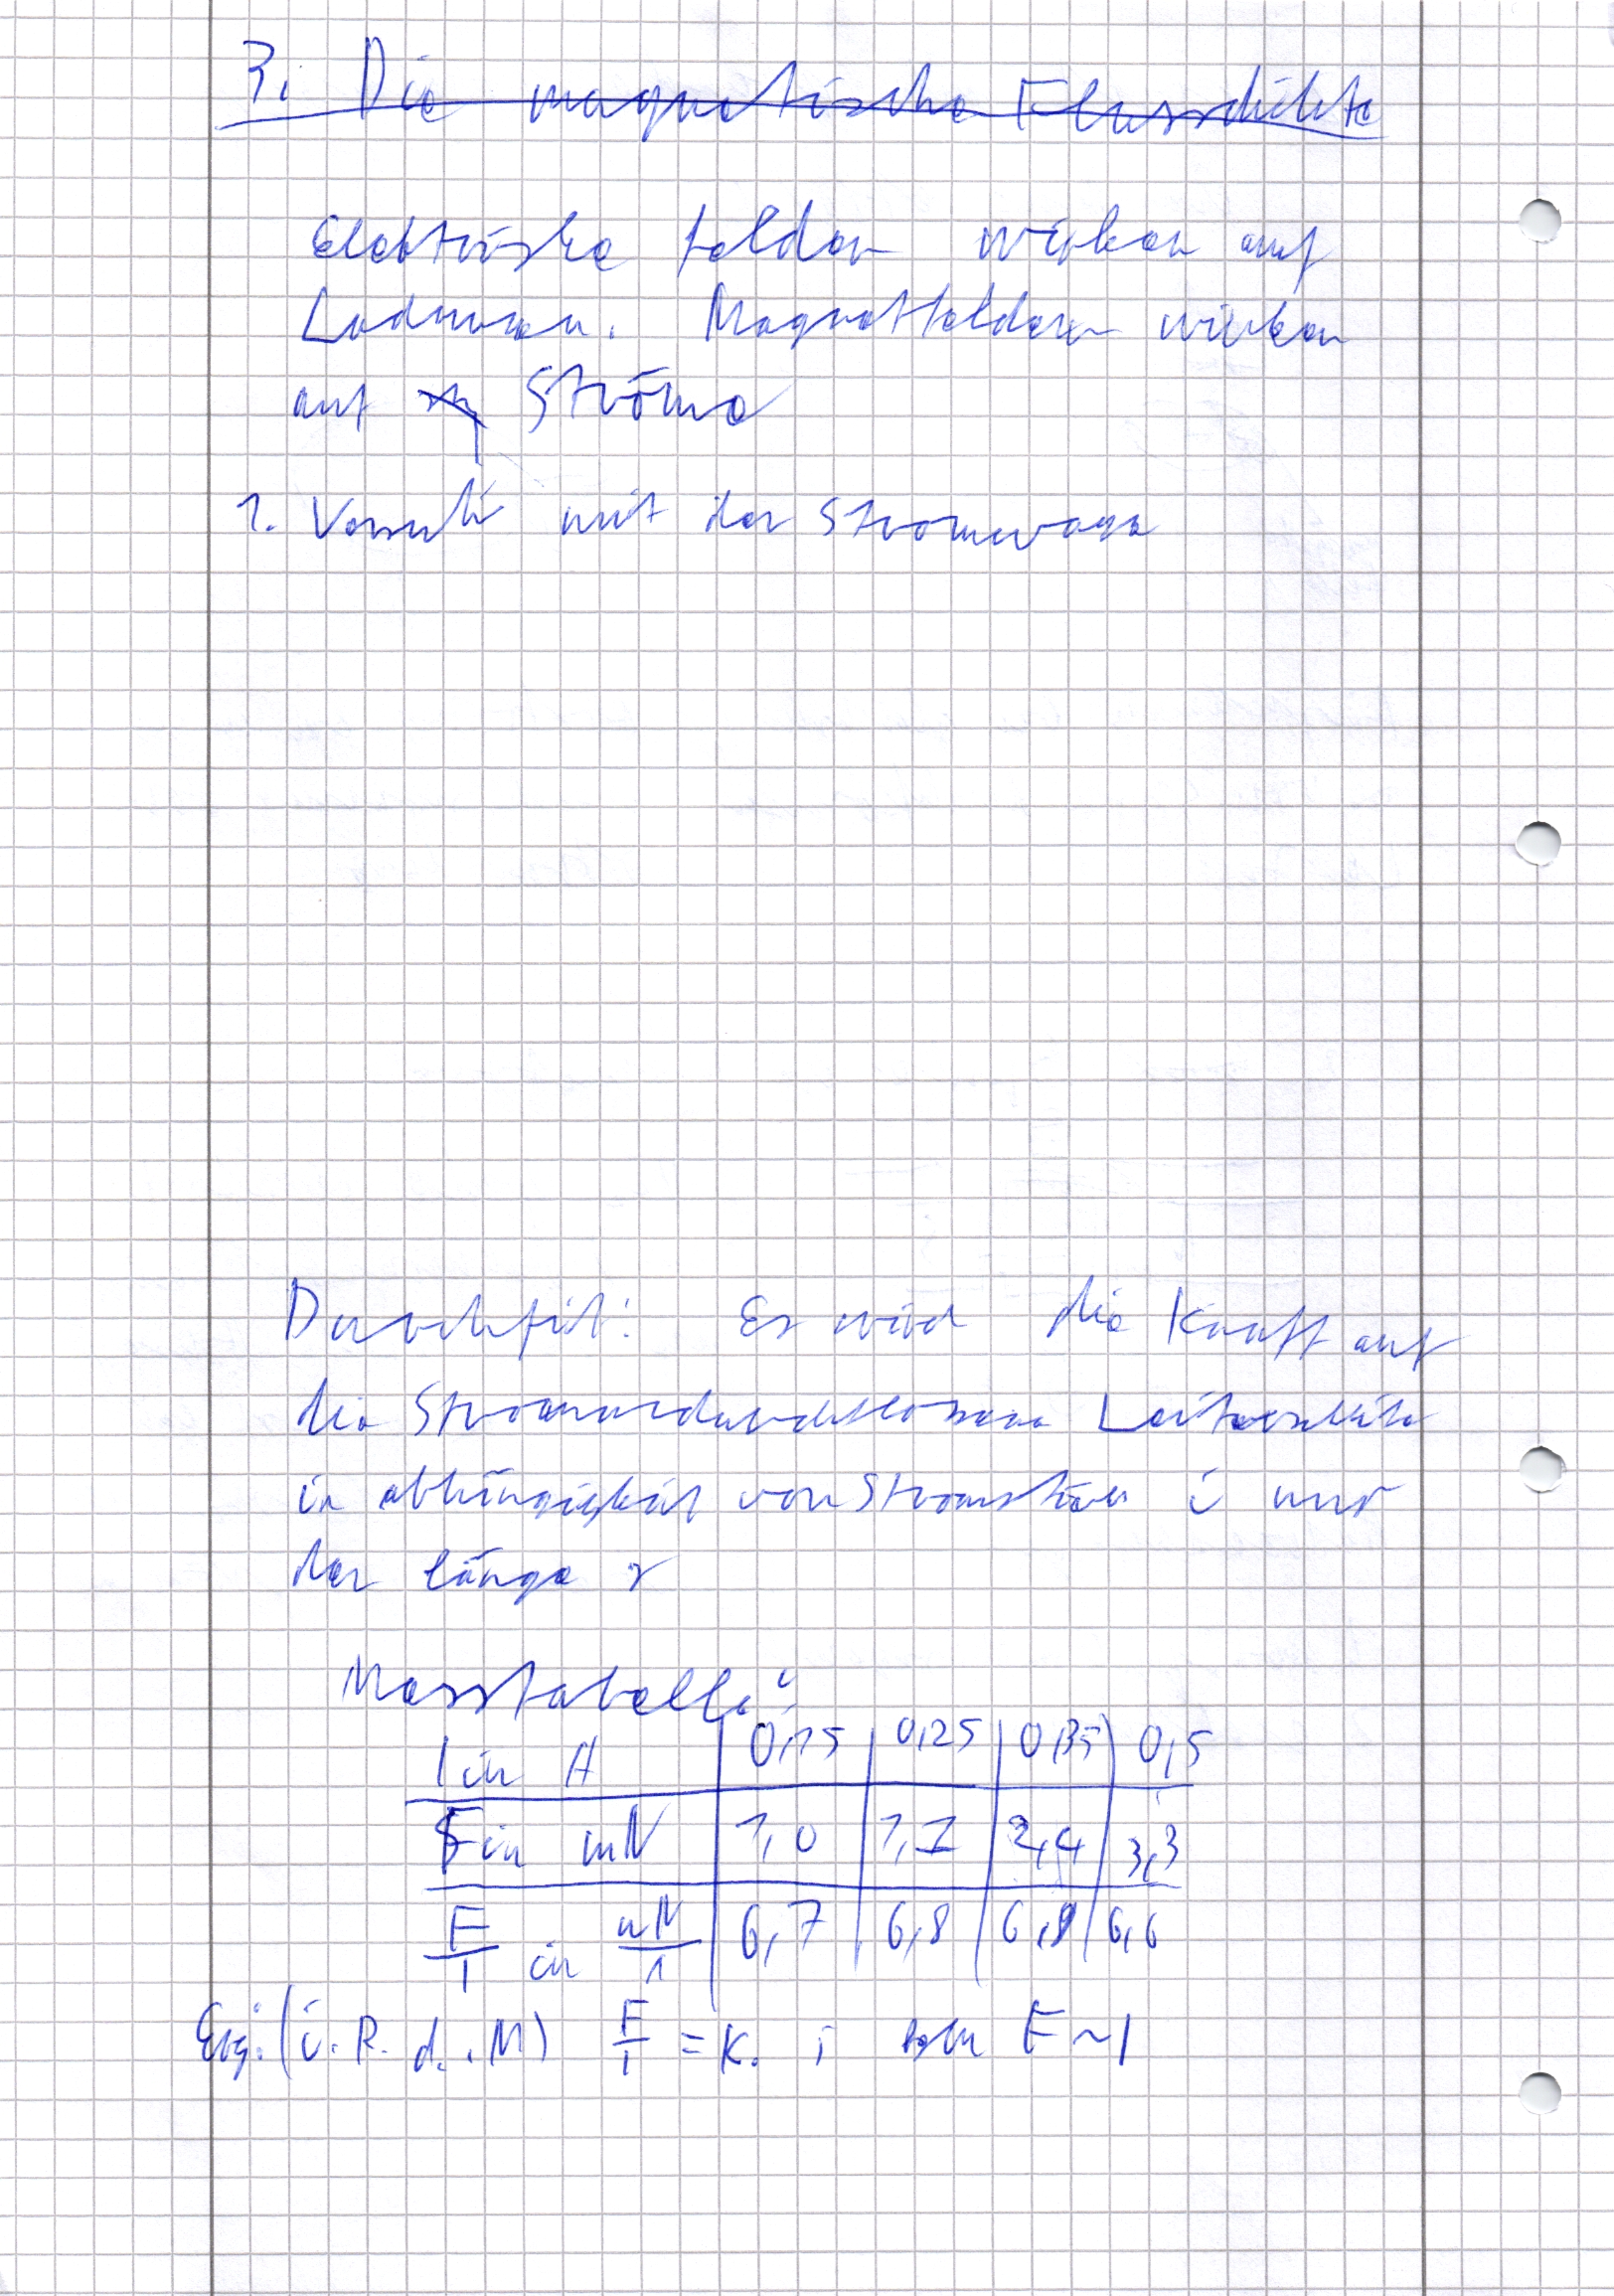 3. Die magnetische Flussdichte
Elektrische felder wirken auf
Ladungen. Magnetfelder wirken
auf Ströme
1. Versuch mit der Stromwaage
Durchfüh: Es wird die Kraft auf
die Stromdurchflossene Leiterschleife
in abhängigkeit von Stromstärke i und
der länge s
Messtabelle:
I in A | 0,15 | 0,25 | 0,35 | 0,5
F in mN | 1,0 | 1,7 | 2,4 | 3,3
F/I in mN/A | 6,7 | 6,8 | 6,9 | 6,6
Erg: (i. R. d. M) F/I = k. ; F ~ I